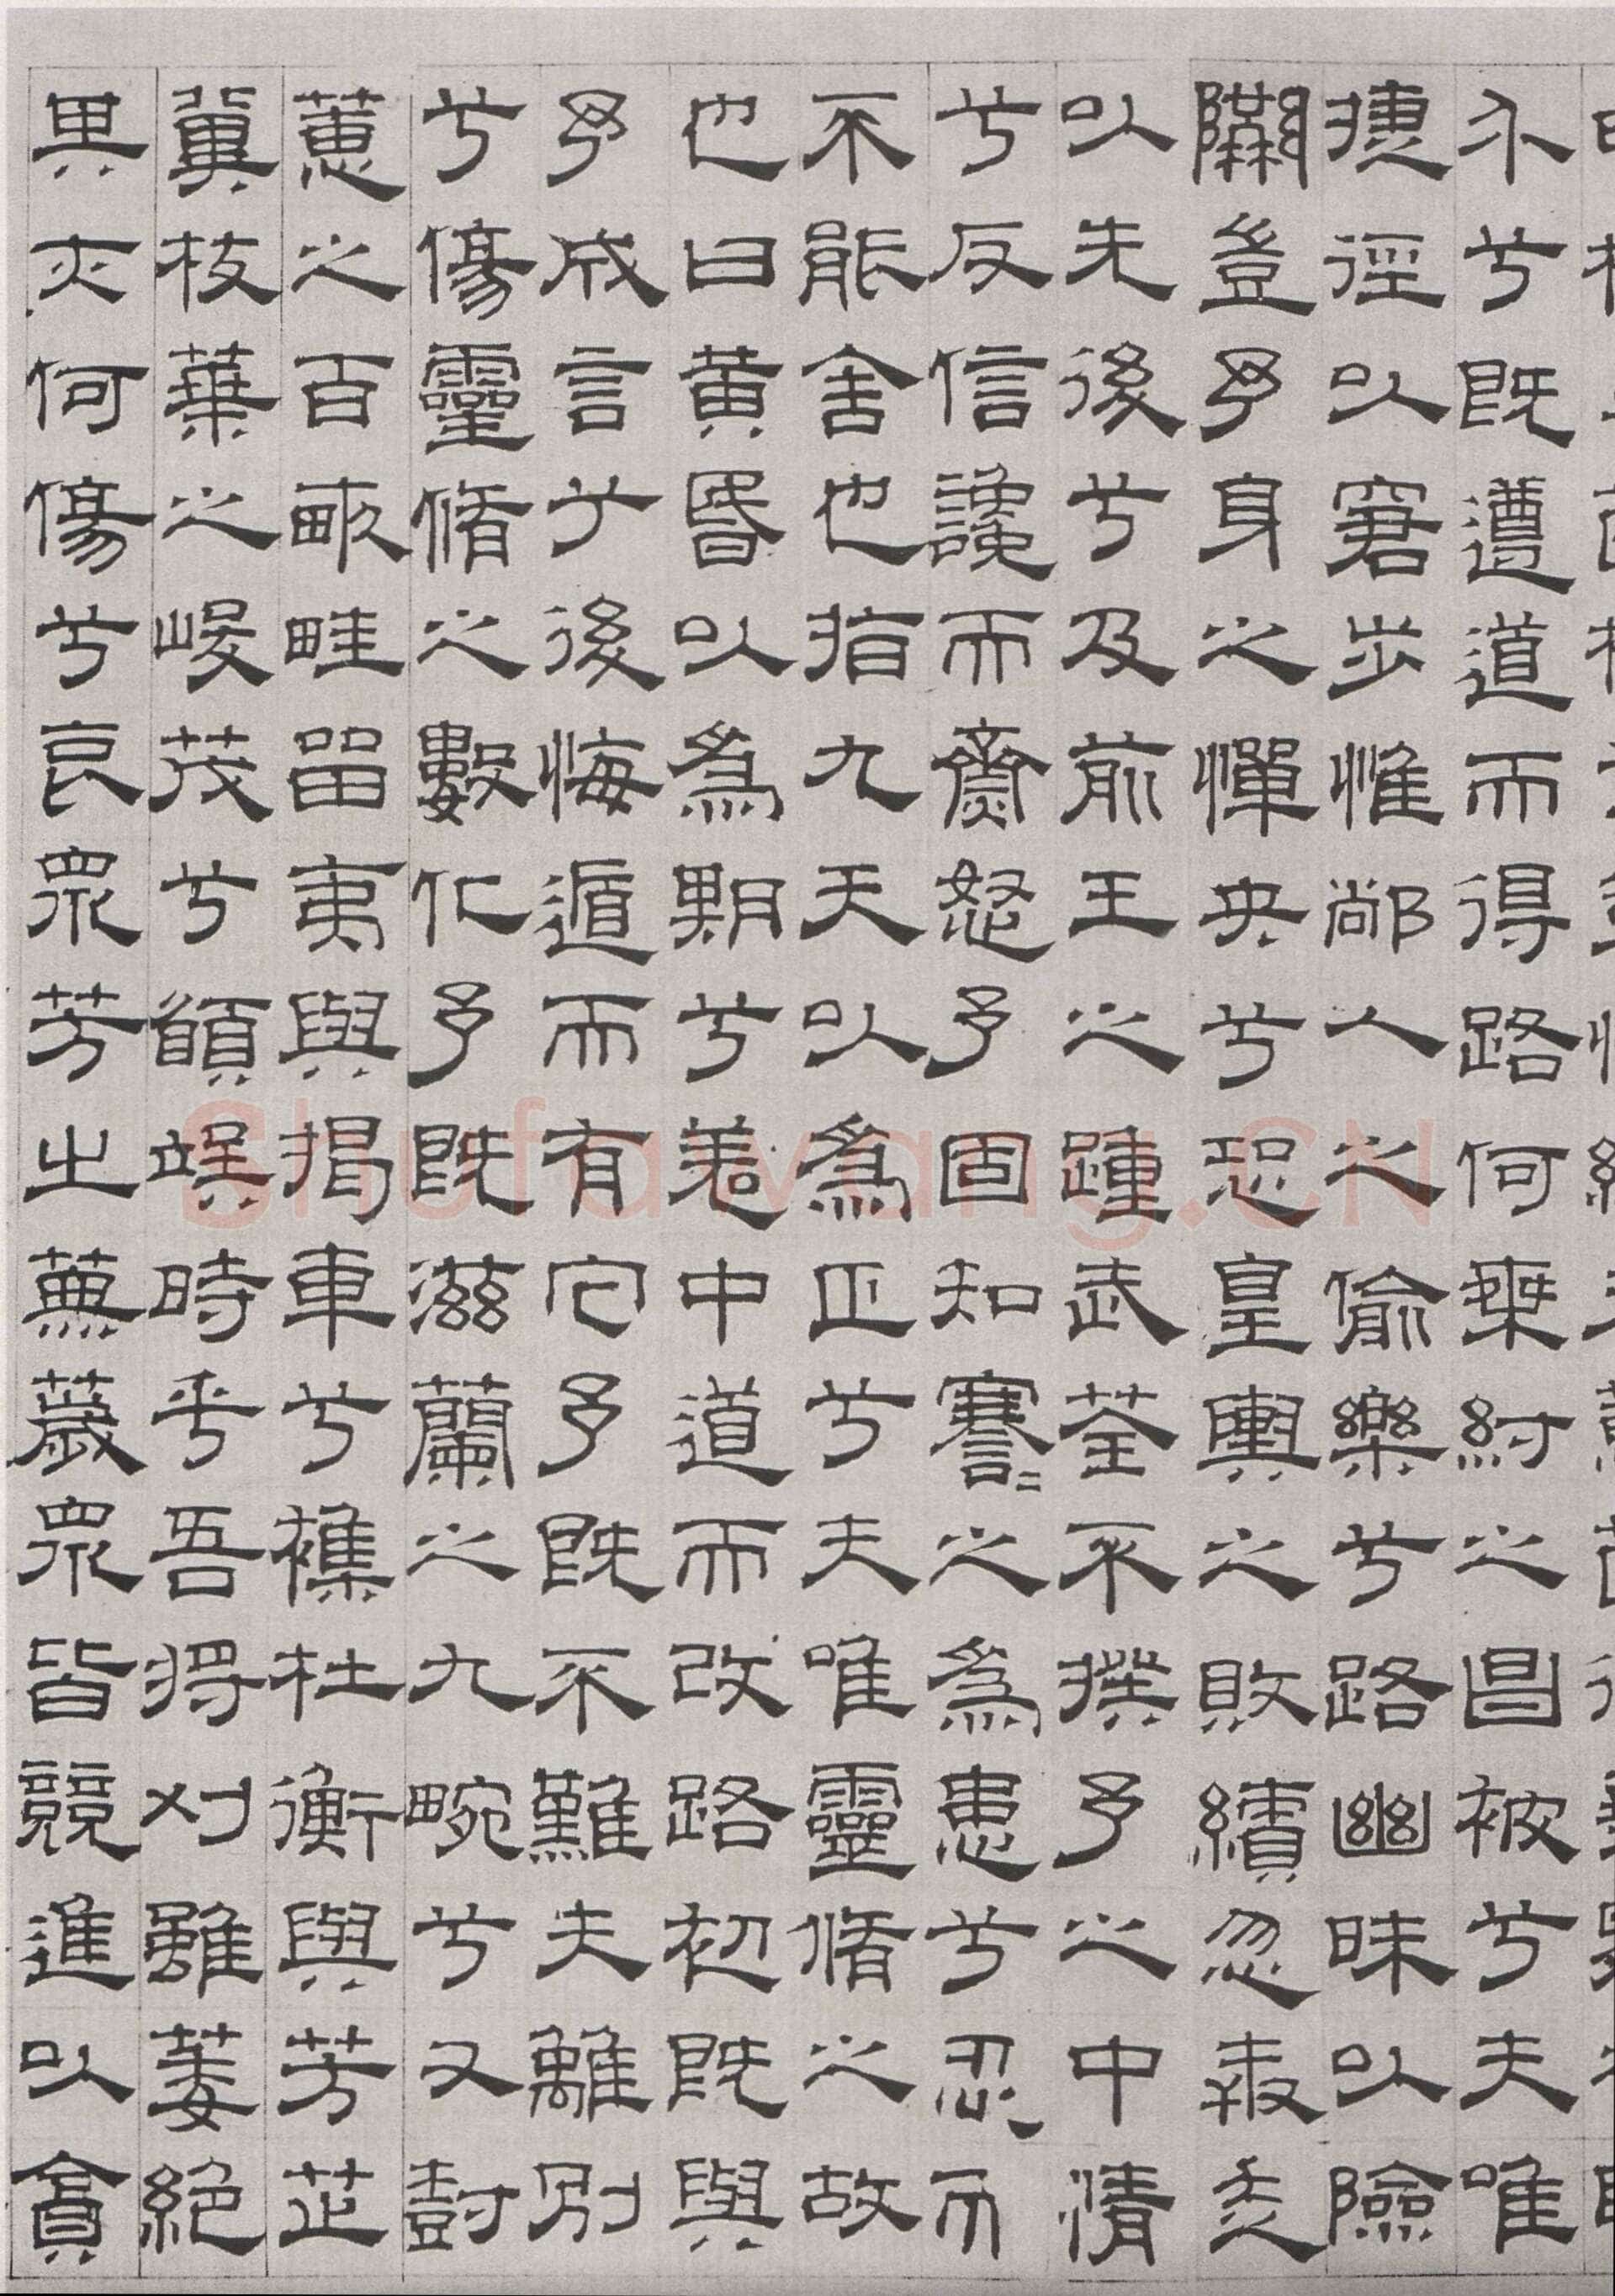 介兮既遵道而得路何桀紂之昌被兮夫唯
捷徑以窘步惟䣊人之偷樂兮路幽昧以險
隘豈予身之憚央兮恐皇輿之敗績忽奔走
以先後兮及前王之踵武荃不揆予之中情
兮反信讒而齌怒予固知謇〻之為患兮忍而
不能舍也指九天以為正兮夫唯靈脩之故
也曰黃昏以為期兮羌中道而改路初既與
予成言于後悔遁而有它予既不難夫離別
兮傷靈脩之數化予既滋蘭之九畹兮又樹
蕙之百畝畦留夷與揭車兮雜杜衡與芳芷
冀枝葉之峻茂兮願竢時乎吾將刈雖萎絕
其亦何傷兮哀眾芳之蕪薉眾皆競進以貪
Shufawang.CN